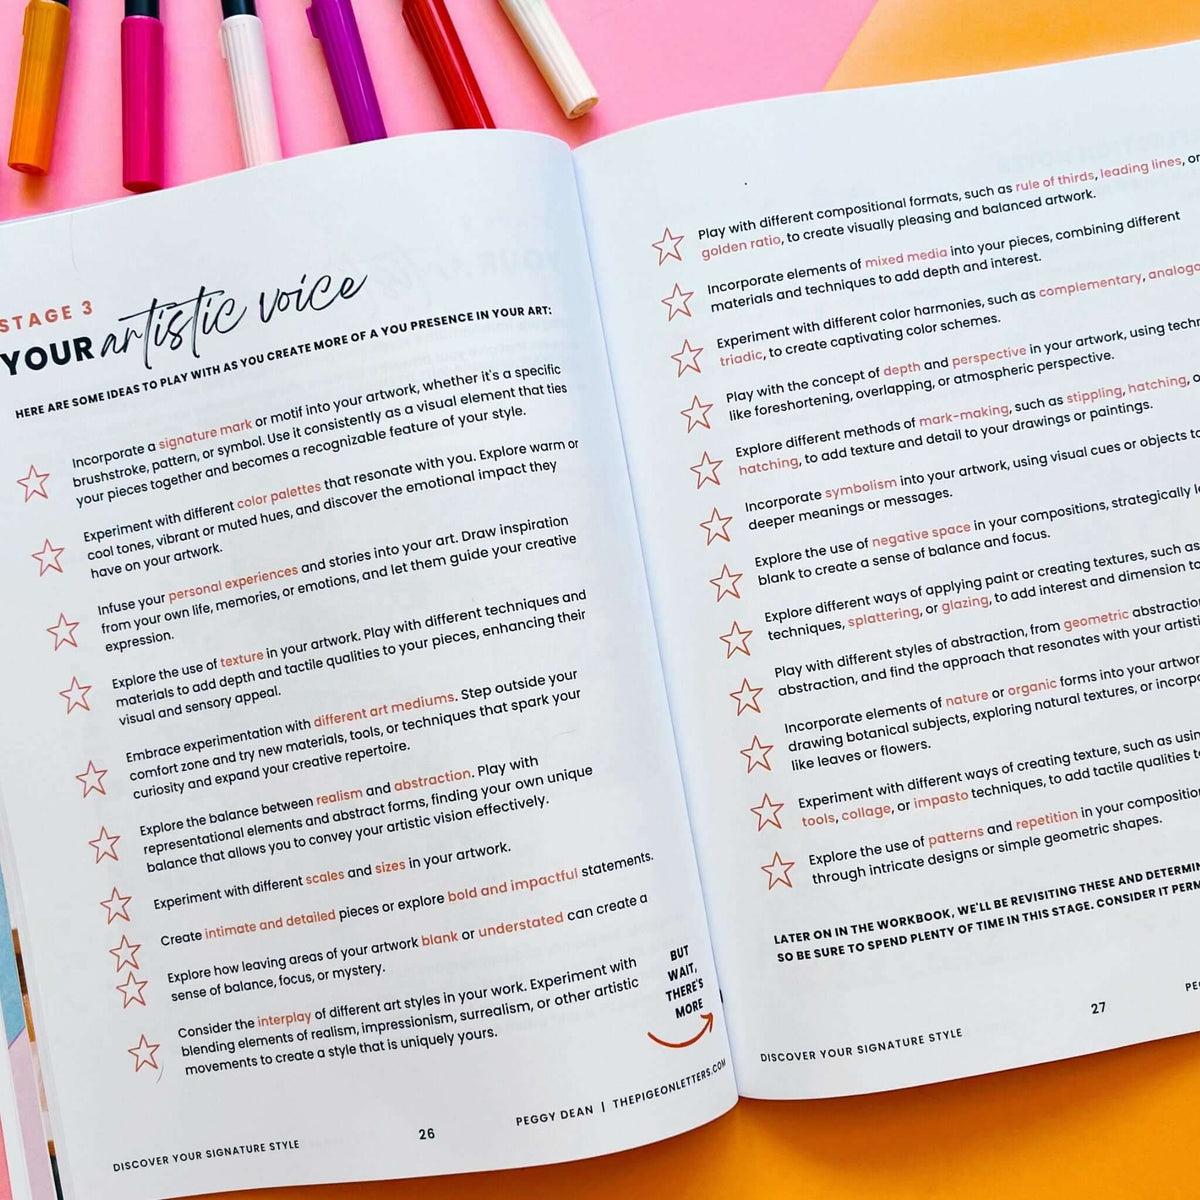 STAGE 3
YOUR artistic voice
HERE ARE SOME IDEAS TO PLAY WITH AS YOU CREATE MORE OF A YOU PRESENCE IN YOUR ART:
Incorporate a signature mark or motif into your artwork, whether it's a specific
brushstroke, pattern, or symbol. Use it consistently as a visual element that ties
your pieces together and becomes a recognizable feature of your style.
Experiment with different color palettes that resonate with you. Explore warm or
cool tones, vibrant or muted hues, and discover the emotional impact they
have on your artwork.
Infuse your personal experiences and stories into your art. Draw inspiration
from your own life, memories, or emotions, and let them guide your creative
expression.
Explore the use of texture in your artwork. Play with different techniques and
materials to add depth and tactile qualities to your pieces, enhancing their
visual and sensory appeal.
Embrace experimentation with different art mediums. Step outside your
comfort zone and try new materials, tools, or techniques that spark your
curiosity and expand your creative repertoire.
Explore the balance between realism and abstraction. Play with
representational elements and abstract forms, finding your own unique
balance that allows you to convey your artistic vision effectively.
Experiment with different scales and sizes in your artwork.
Create intimate and detailed pieces or explore bold and impactful statements.
Explore how leaving areas of your artwork blank or understated can create a
sense of balance, focus, or mystery.
Consider the interplay of different art styles in your work. Experiment with
blending elements of realism, impressionism, surrealism, or other artistic
movements to create a style that is uniquely yours.
BUT
WAIT,
THERE'S
MORE
PEGGY DEAN | THEPIGEONLETTERS.COM
26
DISCOVER YOUR SIGNATURE STYLE
Play with different compositional formats, such as rule of thirds, leading lines, or
golden ratio, to create visually pleasing and balanced artwork.
Incorporate elements of mixed media into your pieces, combining different
materials and techniques to add depth and interest.
Experiment with different color harmonies, such as complementary,
triadic, to create captivating color schemes.
Play with the concept of depth and perspective in your artwork, using
like foreshortening, overlapping, or atmospheric perspective.
Explore different methods of mark-making, such as stippling, hatching,
hatching, to add texture and detail to your drawings or paintings.
Incorporate symbolism into your artwork, using visual cues or objects to
deeper meanings or messages.
Explore the use of negative space in your compositions, strategically
blank to create a sense of balance and focus.
Explore different ways of applying paint or creating textures, such as
techniques, splattering, or glazing, to add interest and dimension to
Play with different styles of abstraction, from geometric
abstraction, and find the approach that resonates with your
Incorporate elements of nature or organic forms into your
drawing botanical subjects, exploring natural textures, or
like leaves or flowers.
Experiment with different ways of creating texture, such as
tools, collage, or impasto techniques, to add tactile qualities
Explore the use of patterns and repetition in your
through intricate designs or simple geometric shapes.
LATER ON IN THE WORKBOOK, WE'LL BE REVISITING THESE AND
SO BE SURE TO SPEND PLENTY OF TIME IN THIS STAGE. CONSIDER IT
27
DISCOVER YOUR SIGNATURE STYLE